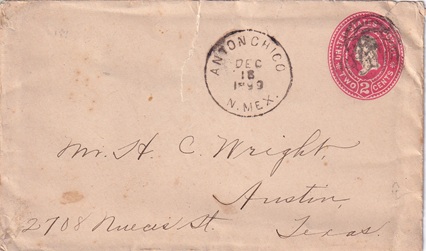 ANTON CHICO
DEC
18
1899
N. MEX.
UNITED STATES
TWO 2 CENTS
Mr. H. C. Wright,
Austin,
2708 Nueces St. Texas.